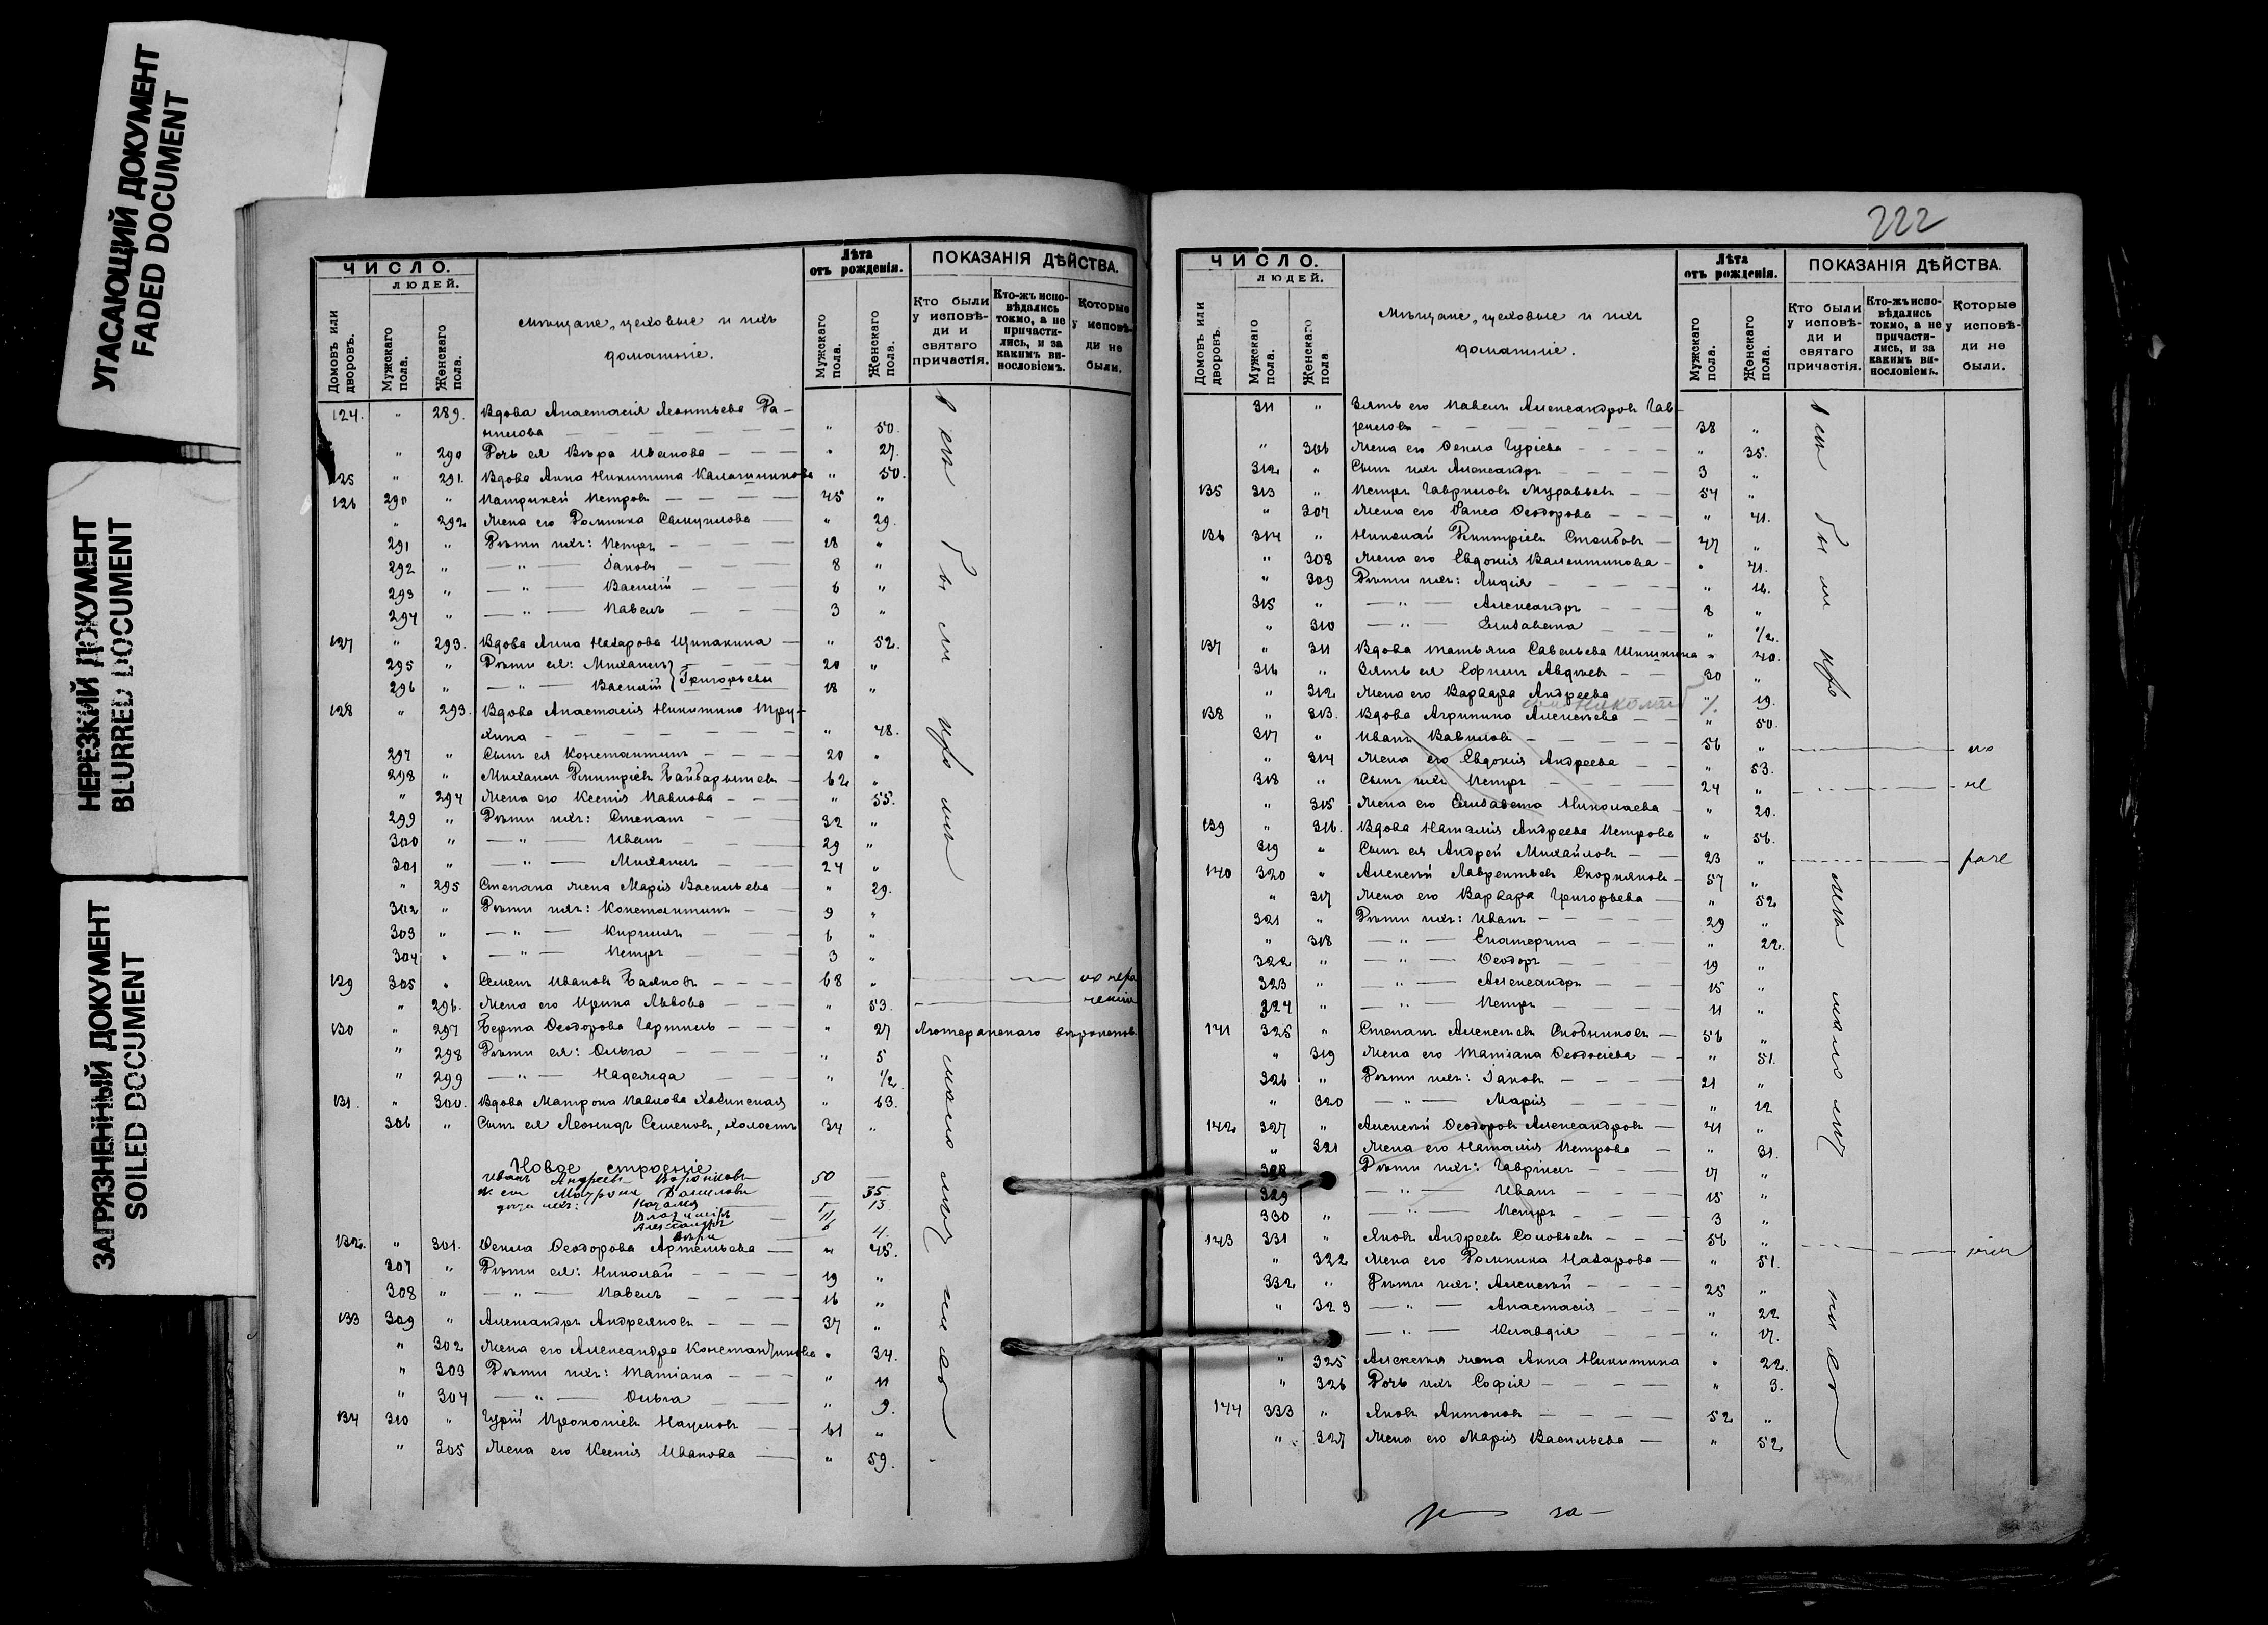 УГАСАЮЩИЙ ДОКУМЕНТ
FADED DOCUMENT
НЕРЕЗКИЙ ДОКУМЕНТ
BLURRED DOCUMENT
ЗАГРЯЗНЕННЫЙ ДОКУМЕНТ
SOILED DOCUMENT
ЧИСЛО.
ЛЮДЕЙ.
Домовъ или дворовъ.
Мужскаго пола.
Женскаго пола.
Мѣщане, цеховые и ихъ
домашніе.
Лѣта отъ рожденія.
Мужскаго пола.
Женскаго пола.
ПОКАЗАНІЯ ДѢЙСТВА.
Кто были у исповѣди и святаго причастія.
Кто-жъ исповѣдались токмо, а не причастились, и за какимъ винословіемъ.
Которые у исповѣди не были.
124. " 289. Вдова Анастасія Леонтьева Да-
нилова — " 50.
" 290 Дочь ея Вѣра Иванова — " 27.
125 " 291. Вдова Анна Никитина Калашникова " 50.
126 290 " Патрикей Петровъ — 45 "
" 292 Жена его Домника Самуилова — " 29.
291 " Дѣти ихъ: Петръ — 18 "
292 " — " — Іаковъ — 8 "
293 " — " — Василій — 6 "
294 " — " — Павелъ — 3 "
127 " 293. Вдова Анна Назарова Щипакина — " 52.
295 " Дѣти ея: Михаилъ — 20 "
296 " — " — Василій } Григорьевы 18 "
128 " 293. Вдова Анастасія Никитина Тру-
хина — " 48.
297 " Сынъ ея Константинъ — 20 "
298 " Михаилъ Димитріевъ Байбарышевъ — 62 "
" 294 Жена его Ксенія Павлова — " 55.
299 " Дѣти ихъ: Степанъ — 32 "
300 " — " — Иванъ — 29 "
301 " — " — Михаилъ — 24 "
" 295 Степана жена Марія Васильева — " 29.
302 " Дѣти ихъ: Константинъ — 9 "
303 " — " — Кириллъ — 6 "
304 " — " — Петръ — 3 "
129 305 " Семенъ Ивановъ Баяновъ — 68 "
" 296. Жена его Ирина Львова — " 53.
130 " 297 Берта Ѳеодорова Гартлиль — " 27 Лютеранскаго вѣроисповѣд.
" 298 Дѣти ея: Ольга — " 5
" 299 — " — Надежда " 1/2.
131. " 300. Вдова Матрона Павлова Хобинская " 63.
306 " Сынъ ея Леонидъ Семеновъ, холостъ 34 "
Новое строеніе
Иванъ Андреевъ Воронковъ 50 —
Ж его Матрона Данилова — 35
дѣти ихъ: Наталія 13
Владиміръ 11
Александръ 6
Вѣра 4.
132. " 301. Ѳекла Ѳеодорова Артемьева — " 45.
307 " Дѣти ея: Николай — 19 "
308 " — " — Павелъ — 16 "
133 309 " Александръ Андреяновъ — 37 "
" 302 Жена его Александра Константинова " 34.
" 303 Дѣти ихъ: Татіана — " 11
" 304 — " — Ольга — " 9.
134 310 " Гурій Прокопіевъ Наумовъ — 61 "
" 305 Жена его Ксенія Иванова — " 59.
222
ЧИСЛО.
ЛЮДЕЙ.
Домовъ или дворовъ.
Мужскаго пола.
Женскаго пола.
Мѣщане, цеховые и ихъ
домашніе.
Лѣта отъ рожденія.
Мужскаго пола.
Женскаго пола.
ПОКАЗАНІЯ ДѢЙСТВА.
Кто были у исповѣди и святаго причастія.
Кто-жъ исповѣдались токмо, а не причастились, и за какимъ винословіемъ.
Которые у исповѣди не были.
311 " Зять его Павелъ Александровъ Гав-
риловъ — 38 "
" 306 Жена его Ѳекла Гуріева — " 35.
312 " Сынъ ихъ Александръ — 3 "
135 313 " Петръ Гавриловъ Муравьевъ — 54 "
" 307 Жена его Раиса Ѳеодорова — " 41.
136 314 " Николай Димитріевъ Столбовъ — 47 "
" 308 Жена его Евдокія Валентинова — " 41.
" 309 Дѣти ихъ: Лидія — " 16.
315 " — " — Александръ — 8 "
" 310 — " — Елизавета " 1/2.
137 " 311 Вдова Татьяна Савельева Шишкина " 40.
316 " Зять ея Ефимъ Авдѣевъ — 30 "
" 312 Жена его Варвара Андреева " 19.
сынъ Николай
138 " 313. Вдова Агрипина Алексѣева — " 50.
317 " Иванъ Вавиловъ — 56 "
" 314 Жена его Евдокія Андреева — " 53.
318 " Сынъ ихъ Петръ — 24 "
" 315 Жена его Елизавета Николаева " 20.
139 " 316. Вдова Наталія Андреева Петрова " 56.
319 " Сынъ ея Андрей Михайловъ — 23 "
140 320 " Алексѣй Лаврентьевъ Скорняковъ — 57 "
" 317 Жена его Варвара Григорьева — " 52
321 " Дѣти ихъ: Иванъ — 29 "
" 318 — " — Екатерина — " 22.
322 " — " — Ѳеодоръ — 19 "
323 " — " — Александръ — 15 "
324 " — " — Петръ — 11 "
141 325 " Степанъ Алексѣевъ Скобниковъ — 56 "
" 319 Жена его Татіана Ѳеодосіева — " 51.
326 " Дѣти ихъ: Іаковъ — 21 "
" 320 — " — Марія — " 12
142 327 " Алексѣй Ѳеодоровъ Александровъ — 41 "
" 321 Жена его Наталія Петрова — " 31.
328 Дѣти ихъ: Гавріилъ — 17 "
329 — " — Иванъ — 15 "
330 " — " — Петръ — 3 "
143 331 " Яковъ Андреевъ Соловьевъ — 56 "
" 322 Жена его Домника Назарова — " 51.
332 " Дѣти ихъ: Алексѣй — 25 "
" 323 — " — Анастасія — " 22
— " — Клавдія — " 17.
" 325 Алексѣя жена Анна Никитина " 22.
" 326 Дочь ихъ Софія — " 3.
144 333 " Яковъ Антоновъ — 52 "
" 327 Жена его Марія Васильева — " 52